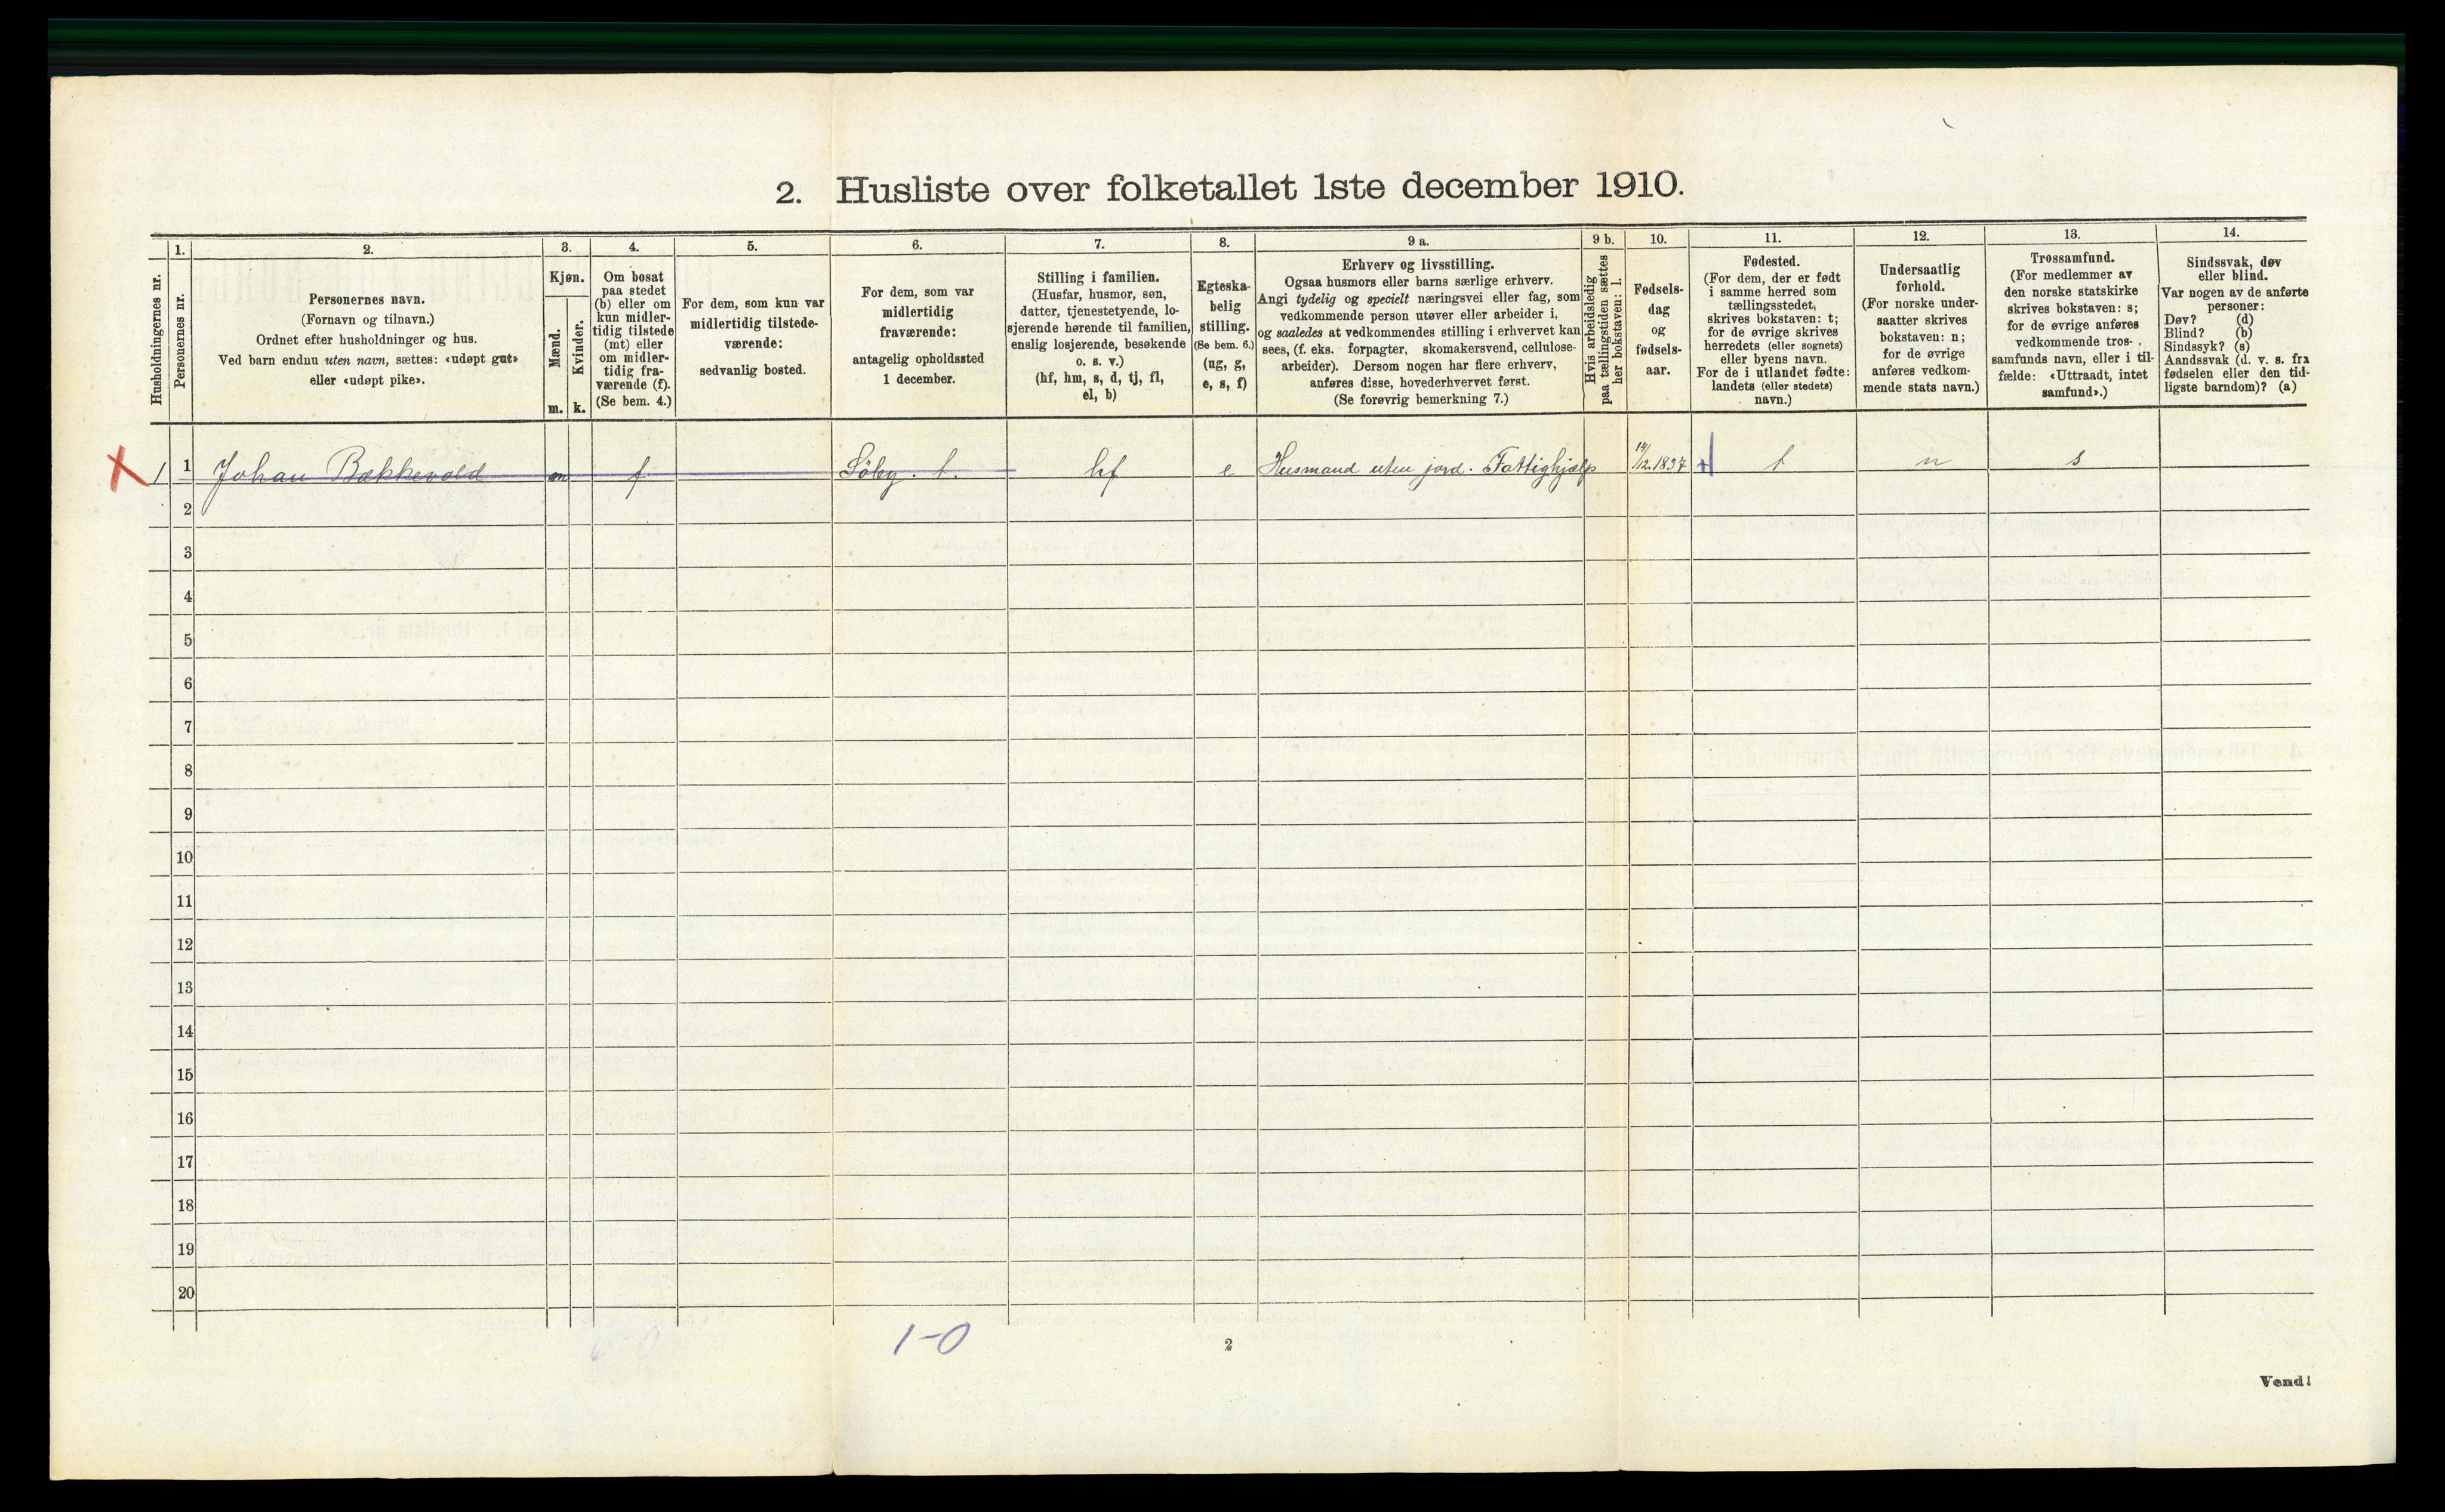 2. Husliste over folketallet 1ste december 1910.
Husholdningernes nr.
1.
Personernes nr.
2.
Personernes navn.
(Fornavn og tilnavn.)
Ordnet efter husholdninger og hus.
Ved barn endnu uten navn, sættes: «udøpt gut»
eller «udøpt pike».
3.
Kjøn.
Mænd.
Kvinder.
m. k.
4.
Om bosat
paa stedet
(b) eller om
kun midler-
tidig tilstede
(mt) eller
om midler-
tidig fra-
værende (f).
(Se bem. 4.)
5.
For dem, som kun var
midlertidig tilstede-
værende:
sedvanlig bosted.
6.
For dem, som var
midlertidig
fraværende:
antagelig opholdssted
1 december.
7.
Stilling i familien.
(Husfar, husmor, søn,
datter, tjenestetyende, lo-
sjerende hørende til familien,
enslig losjerende, besøkende
o. s. v.)
(hf, hm, s, d, tj, fl,
el, b)
8.
Egteska-
belig
stilling.
(Se bem. 6.)
(ug, g,
e, s, f)
9 a.
Erhverv og livsstilling.
Ogsaa husmors eller barns særlige erhverv.
Angi tydelig og specielt næringsvei eller fag, som
vedkommende person utøver eller arbeider i,
og saaledes at vedkommendes stilling i erhvervet kan
sees, (f. eks. forpagter, skomakersvend, cellulose-
arbeider). Dersom nogen har flere erhverv,
anføres disse, hovederhvervet først.
(Se forøvrig bemerkning 7.)
9 b.
Hvis arbeidsledig
paa tællingstiden sættes
her bokstaven: l.
10.
Fødsels-
dag
og
fødsels-
aar.
11.
Fødested.
(For dem, der er født
i samme herred som
tællingsstedet,
skrives bokstaven: t;
for de øvrige skrives
herredets (eller sognets)
eller byens navn.
For de i utlandet fødte:
landets (eller stedets)
navn.)
12.
Undersaatlig
forhold.
(For norske under-
saatter skrives
bokstaven: n;
for de øvrige
anføres vedkom-
mende stats navn.)
13.
Trossamfund.
(For medlemmer av
den norske statskirke
skrives bokstaven: s;
for de øvrige anføres
vedkommende tros-
samfunds navn, eller i til-
fælde: «Uttraadt, intet
samfund».)
14.
Sindssvak, døv
eller blind.
Var nogen av de anførte
personer:
Døv? (d)
Blind? (b)
Sindssyk? (s)
Aandssvak (d. v. s. fra
fødselen eller den tid-
ligste barndom)? (a)
X 1 1 Johan Bækkevold m f Söby. t. hf e Husmand uten jord. Fattighjælp 14/12.1837 t n s
2
3
4
5
6
7
8
9
10
11
12
13
14
15
16
17
18
19
20
1-0
2
Vend!